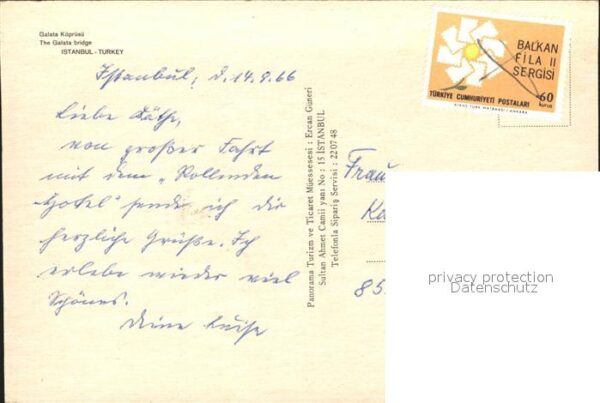 Galata Köprüsü
The Galata bridge
ISTANBUL - TURKEY
Istanbul, d. 14.9.66
Liebe Käthe,
von großer Fahrt
mit dem „Rollenden
Hotel" sende ich die
herzliche Grüße. Ich
erlebe wieder viel
Schönes.
Deine Luise
Panorama Turizm ve Ticaret Müessesesi : Ercan Güneri
Sultan Ahmet Camii yanı No : 15 İSTANBUL
Telefonla Sipariş Servisi : 22 07 48
BALKAN
FİLA II
SERGİSİ
TÜRKİYE CUMHURİYETİ POSTALARI
60
kuruş
Frau
85
privacy protection
Datenschutz